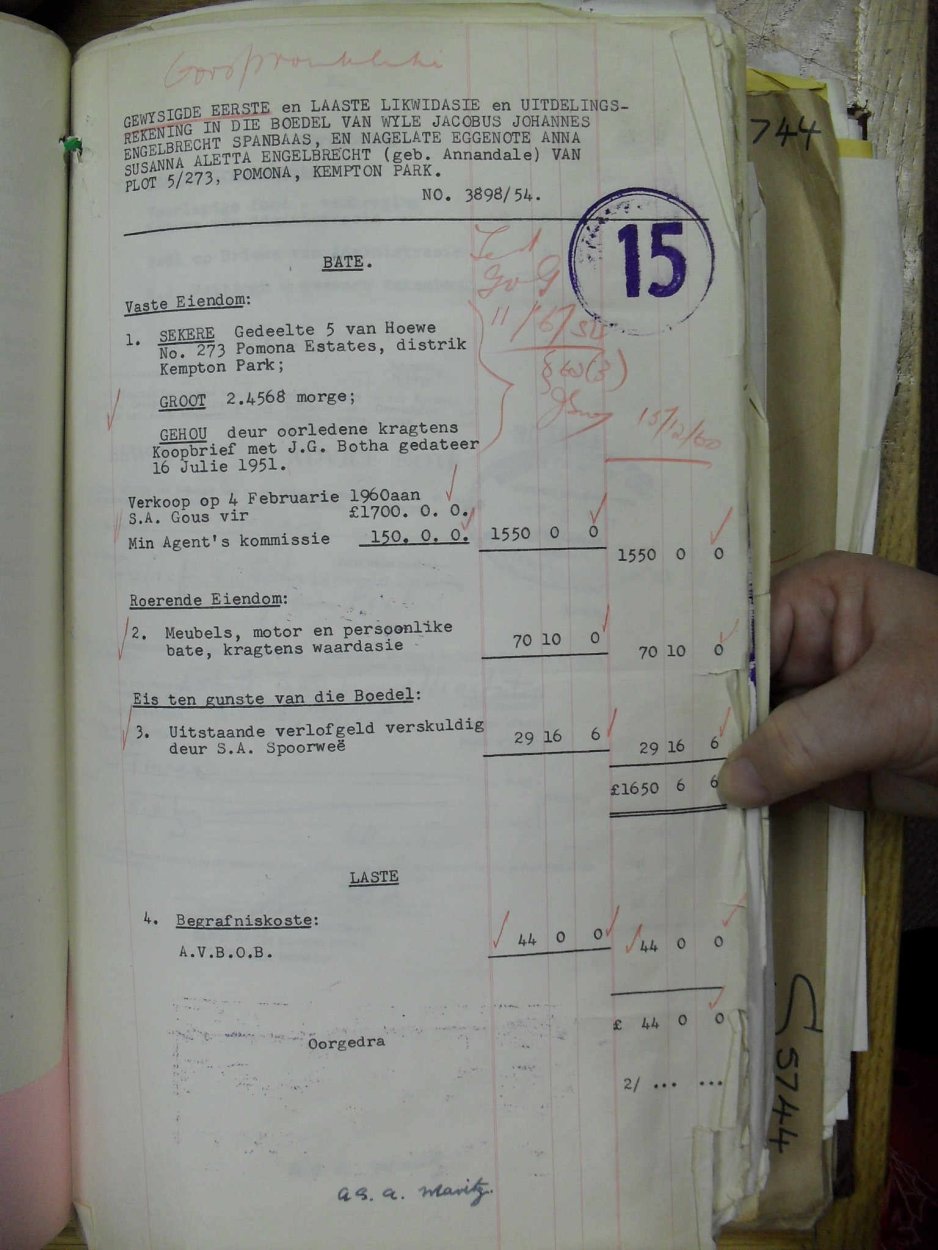 Oorspronklike
GEWYSIGDE EERSTE en LAASTE LIKWIDASIE en UITDELINGS-
REKENING IN DIE BOEDEL VAN WYLE JACOBUS JOHANNES
ENGELBRECHT SPANBAAS, EN NAGELATE EGGENOTE ANNA
SUSANNA ALETTA ENGELBRECHT (geb. Annandale) VAN
PLOT 5/273, POMONA, KEMPTON PARK.
NO. 3898/54.
15
BATE.
Vaste Eiendom:
1. SEKERE Gedeelte 5 van Hoewe
No. 273 Pomona Estates, distrik
Kempton Park;
GROOT 2.4568 morge;
15/12/60
GEHOU deur oorledene kragtens
Koopbrief met J.G. Botha gedateer
16 Julie 1951.
Verkoop op 4 Februarie 1960aan
S.A. Gous vir £1700. 0. 0.
Min Agent's kommissie 150. 0. 0. 1550 0 0
1550 0 0
Roerende Eiendom:
2. Meubels, motor en persoonlike
bate, kragtens waardasie 70 10 0 70 10 0
Eis ten gunste van die Boedel:
3. Uitstaande verlofgeld verskuldig
deur S.A. Spoorweë 29 16 6 29 16 6
£1650 6 6
LASTE
4. Begrafniskoste:
A.V.B.O.B. 44 0 0 44 0 0
£ 44 0 0
Oorgedra
2/ ... ...
a.s. a. Maritz.
744
S 5744